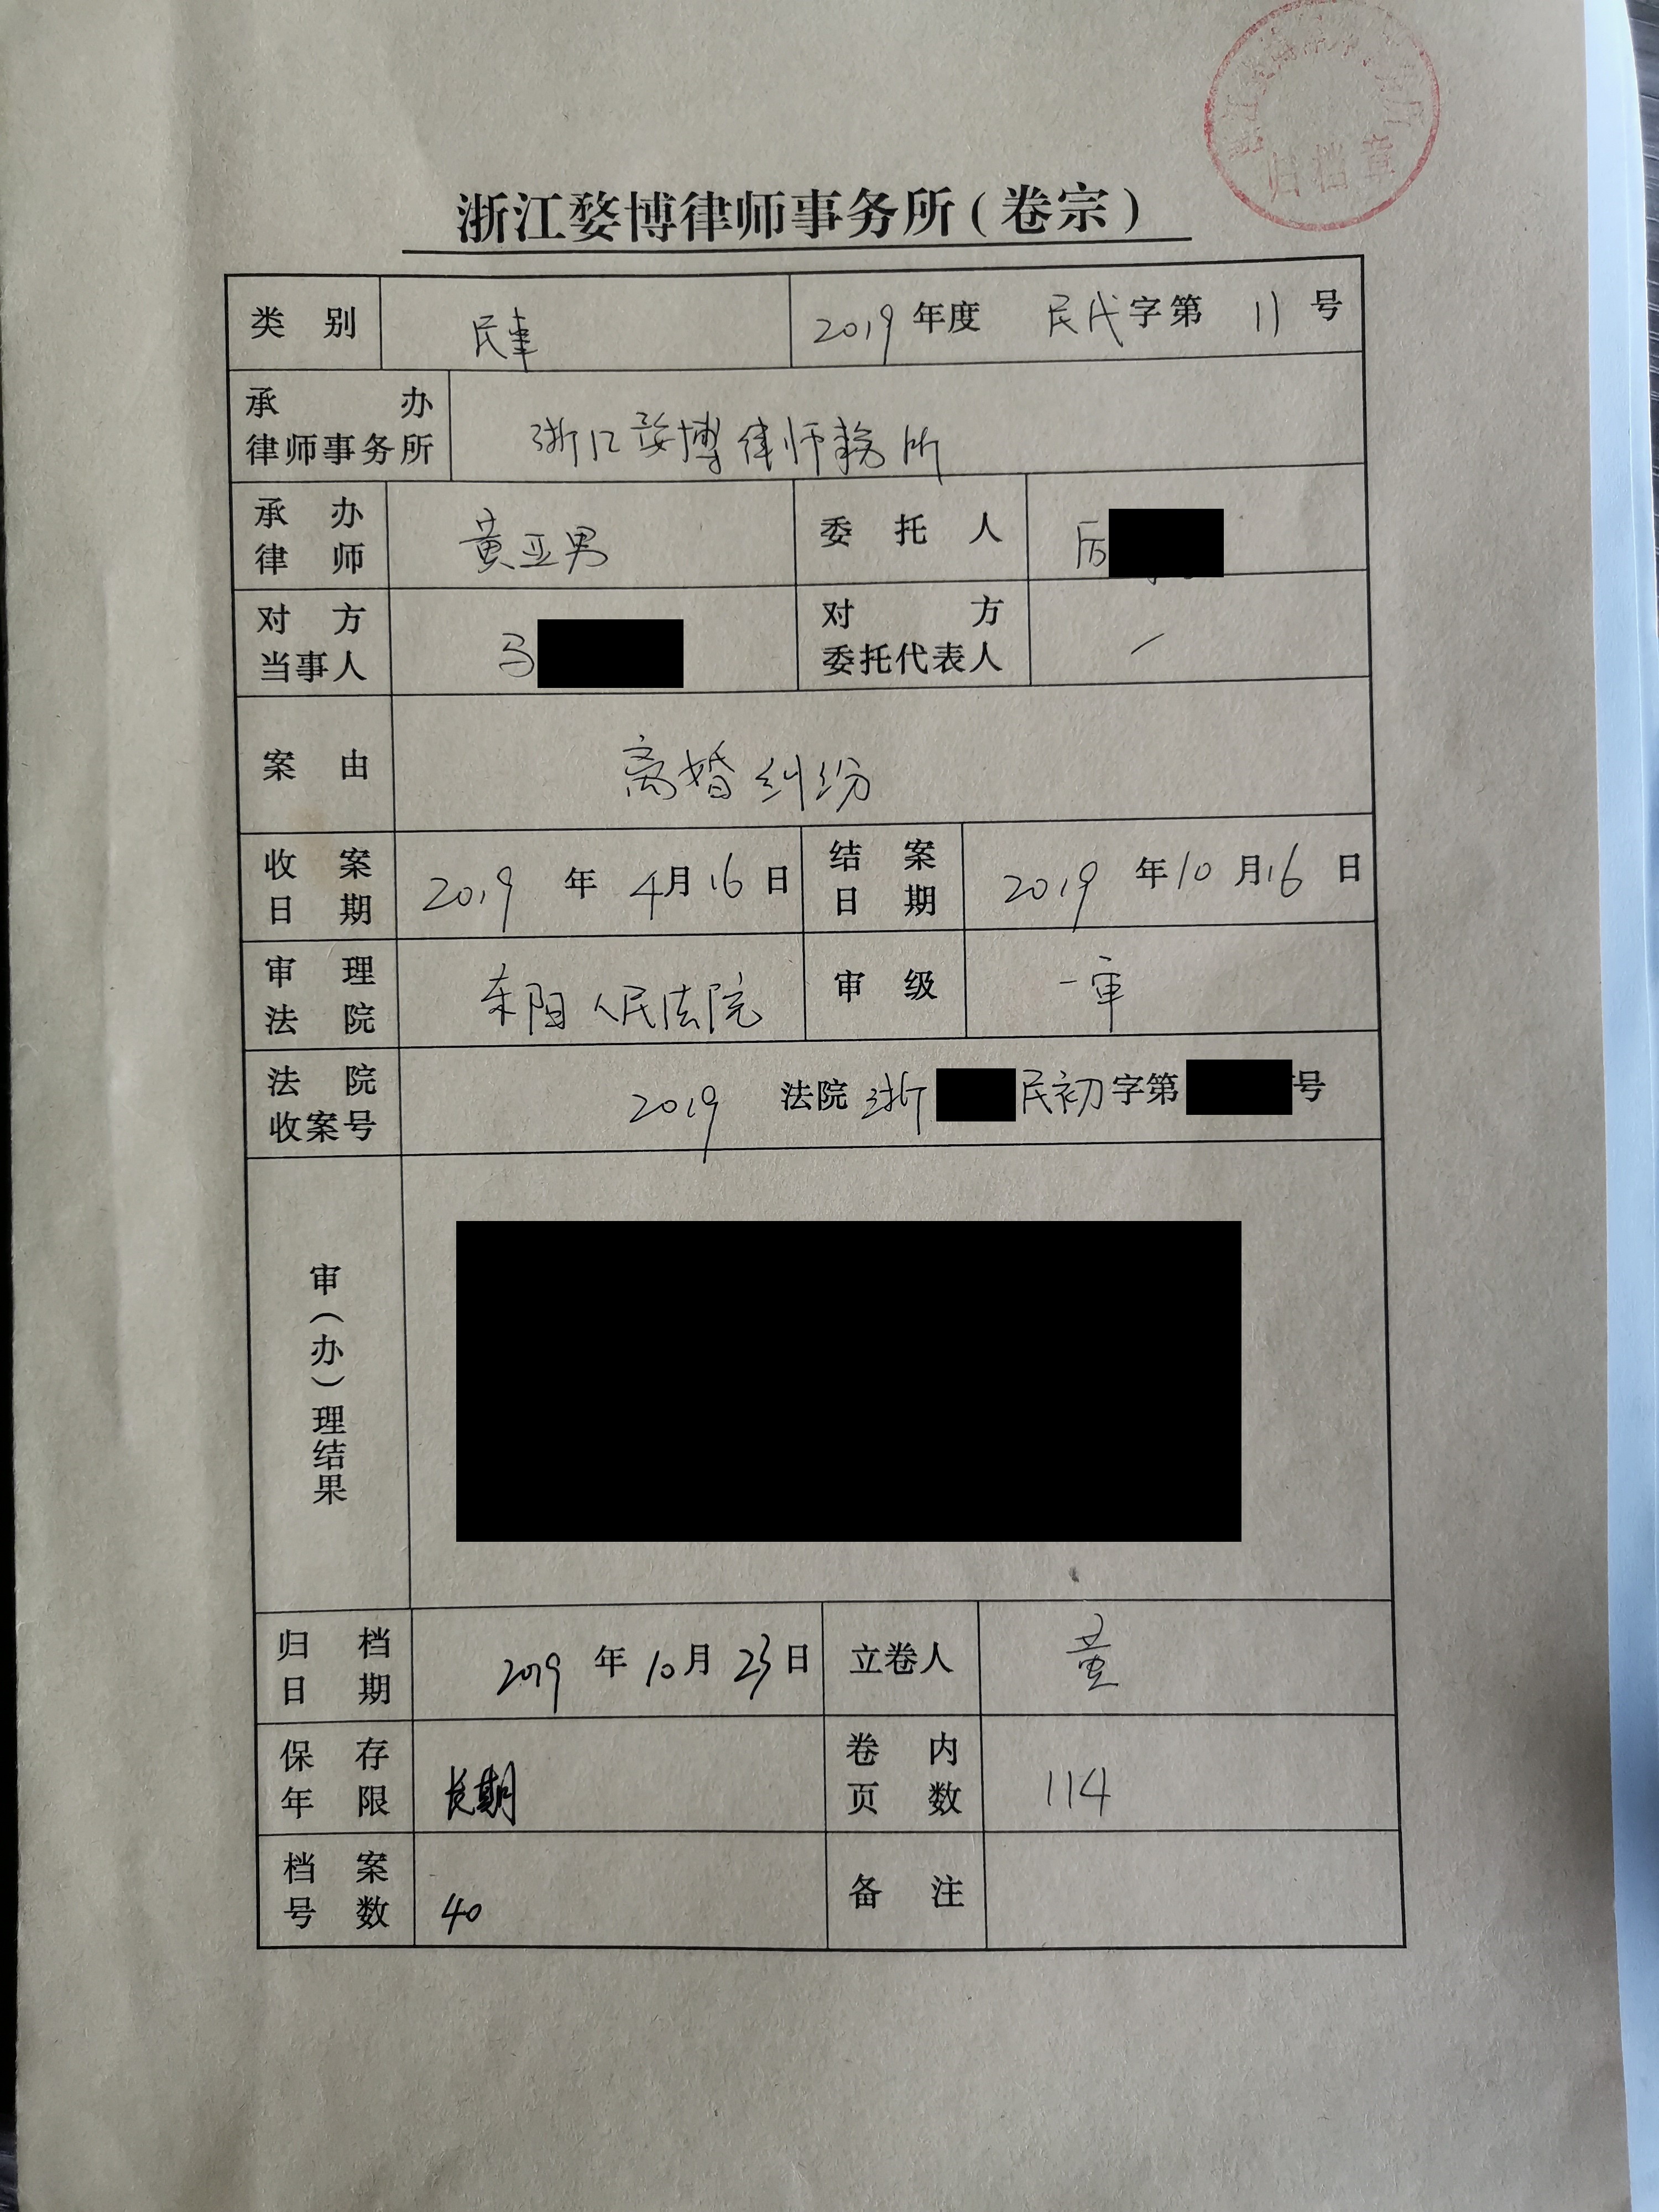 归档章
浙江婺博律师事务所(卷宗)
类别 民事 2019年度 民代字第 11 号
承办律师事务所 浙江婺博律师事务所
承办律师 黄亚男 委托人 厉
对方当事人 马 对方委托代表人 /
案由 离婚纠纷
收案日期 2019年4月16日 结案日期 2019年10月16日
审理法院 东阳人民法院 审级 一审
法院收案号 2019 法院浙 民初字第 号
审(办)理结果
归档日期 2019年10月23日 立卷人 黄
保存年限 长期 卷内页数 114
档案号数 40 备注